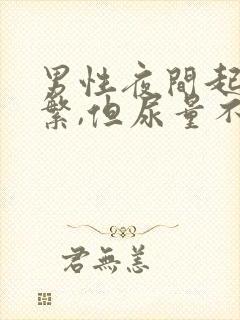 男性夜間起
繁,但尿量不
君無恙